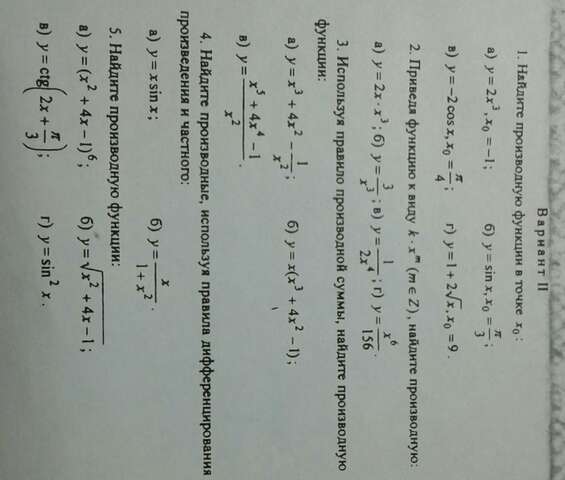 Вариант II
1. Найдите производную функции в точке x₀:
а) y = 2x³, x₀ = −1; б) y = sin x, x₀ = π/3;
в) y = −2 cos x, x₀ = π/4; г) y = 1 + 2√x, x₀ = 9.
2. Приведя функцию к виду k · xᵐ (m ∈ Z), найдите производную:
а) y = 2x · x³; б) y = 3/x³; в) y = 1/(2x⁴); г) y = x⁶/156.
3. Используя правило производной суммы, найдите производную
функции:
а) y = x³ + 4x² − 1/x²; б) y = x(x³ + 4x² − 1);
в) y = (x⁵ + 4x⁴ − 1)/x².
4. Найдите производные, используя правила дифференцирования
произведения и частного:
а) y = x sin x; б) y = x/(1 + x²).
5. Найдите производную функции:
а) y = (x² + 4x − 1)⁶; б) y = √(x² + 4x − 1);
в) y = ctg(2x + π/3); г) y = sin² x.